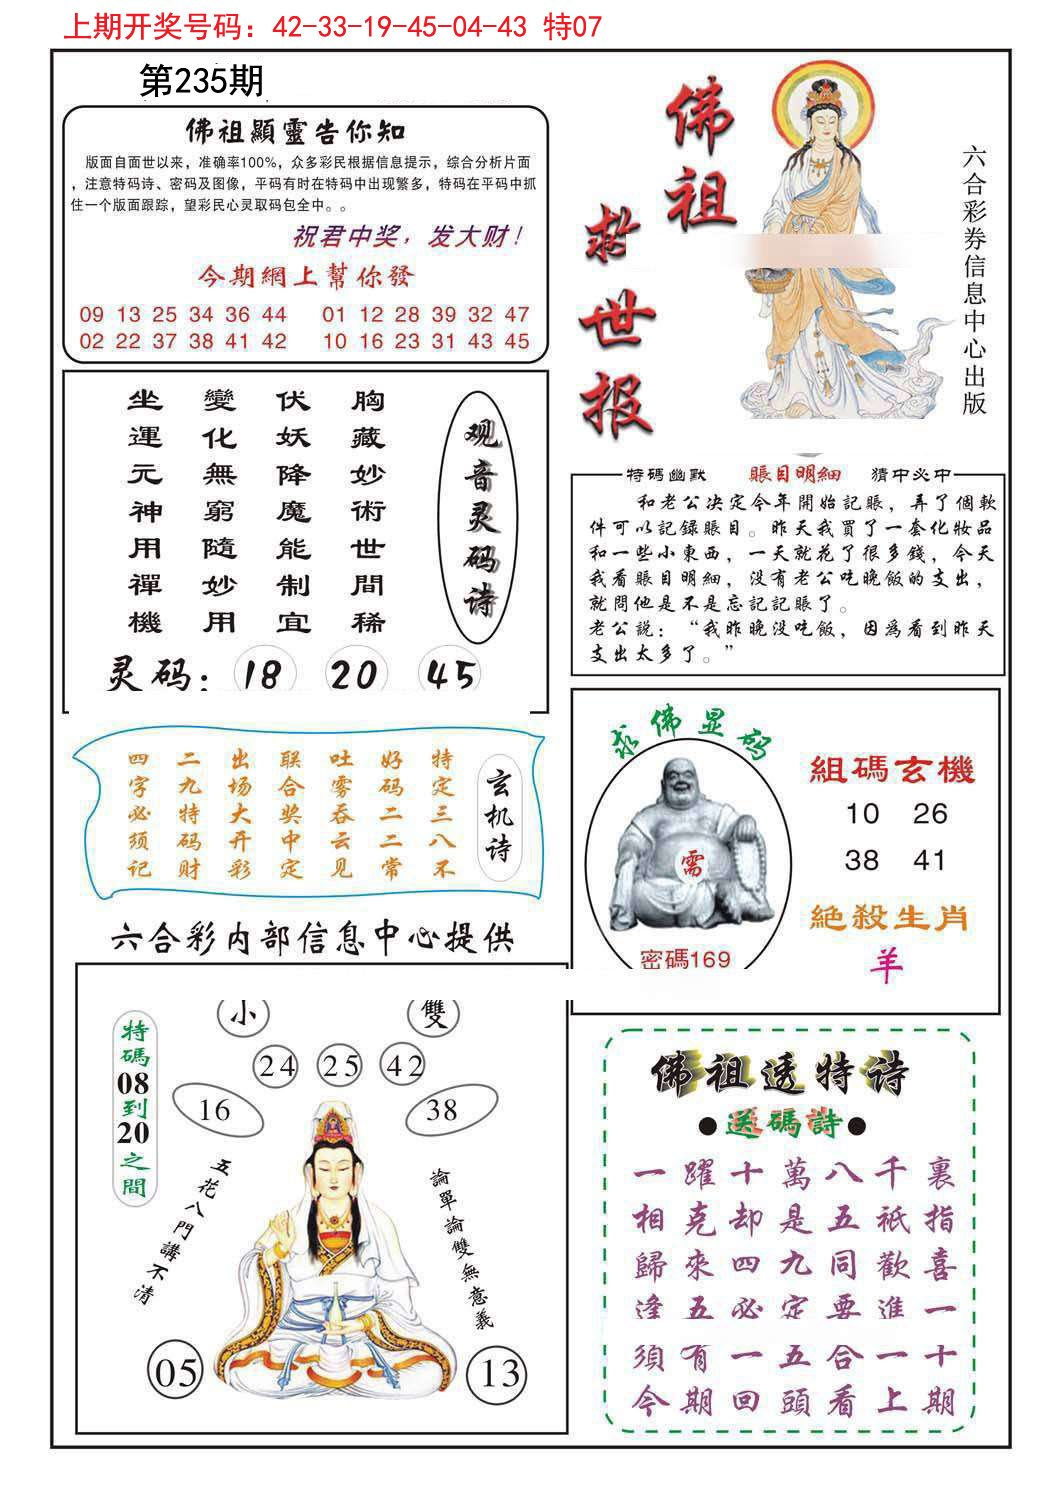 上期开奖号码：42-33-19-45-04-43 特07
第235期
佛祖顯靈告你知
版面自面世以来，准确率100%，众多彩民根据信息提示，综合分析片面
，注意特码诗、密码及图像，平码有时在特码中出现繁多，特码在平码中抓
住一个版面跟踪，望彩民心灵取码包全中。。
祝君中奖，发大财！
今期網上幫你發
09 13 25 34 36 44 01 12 28 39 32 47
02 22 37 38 41 42 10 16 23 31 43 45
佛祖
救世报
六合彩券信息中心出版
观音灵码诗
胸藏妙術世間稀
伏妖降魔能制宜
變化無窮隨妙用
坐運元神用禪機
灵码：18 20 45
特码幽默 賬目明細 猜中必中
和老公决定今年開始記賬，弄了個軟
件可以記録賬目。昨天我買了一套化妝品
和一些小東西，一天就花了很多錢，今天
我看賬目明細，没有老公吃晚飯的支出，
就問他是不是忘記記賬了。
老公説：“我昨晚没吃飯，因爲看到昨天
支出太多了。”
玄机诗
特定三八不
好码二二常
吐雾吞云见
联合奖中定
出场大开彩
二九特码财
四字必须记
求佛显码
需
密碼169
組碼玄機
10 26
38 41
絕殺生肖
羊
六合彩内部信息中心提供
小 雙
24 25 42
16 38
特碼08到20之間
五花八門講不清
論單論雙無意義
05 13
佛祖透特诗
●送碼詩●
一躍十萬八千裏
相克却是五祇指
歸來四九同歡喜
逢五必定要進一
須有一五合一十
今期回頭看上期